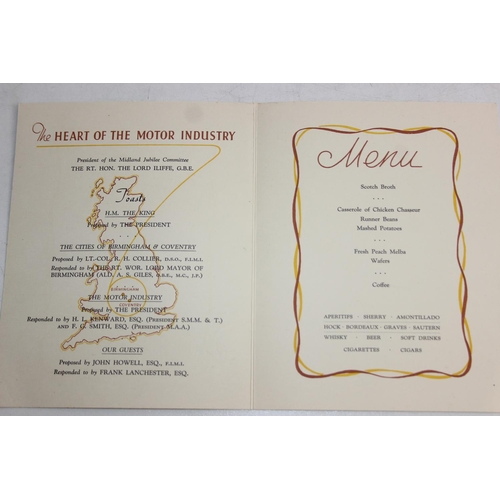 The HEART OF THE MOTOR INDUSTRY
President of the Midland Jubilee Committee
THE RT. HON. THE LORD ILIFFE, G.B.E.
Toasts
H.M. THE KING
Proposed by THE PRESIDENT
...
THE CITIES OF BIRMINGHAM & COVENTRY
Proposed by LT.-COL. R. H. COLLIER, D.S.O., F.I.M.I.
Responded to by THE RT. WOR. LORD MAYOR OF
BIRMINGHAM (ALD. A. S. GILES, O.B.E., M.C., J.P.)
BIRMINGHAM
THE MOTOR INDUSTRY
COVENTRY
Proposed by THE PRESIDENT
Responded to by H. L. KENWARD, ESQ. (PRESIDENT S.M.M. & T.)
and F. G. SMITH, ESQ. (PRESIDENT M.A.A.)
...
OUR GUESTS
Proposed by JOHN HOWELL, ESQ., F.I.M.I.
Responded to by FRANK LANCHESTER, ESQ.
Menu
Scotch Broth
...
Casserole of Chicken Chasseur
Runner Beans
Mashed Potatoes
...
Fresh Peach Melba
Wafers
...
Coffee
APERITIFS · SHERRY · AMONTILLADO
HOCK · BORDEAUX · GRAVES · SAUTERN
WHISKY · BEER · SOFT DRINKS
CIGARETTES · CIGARS